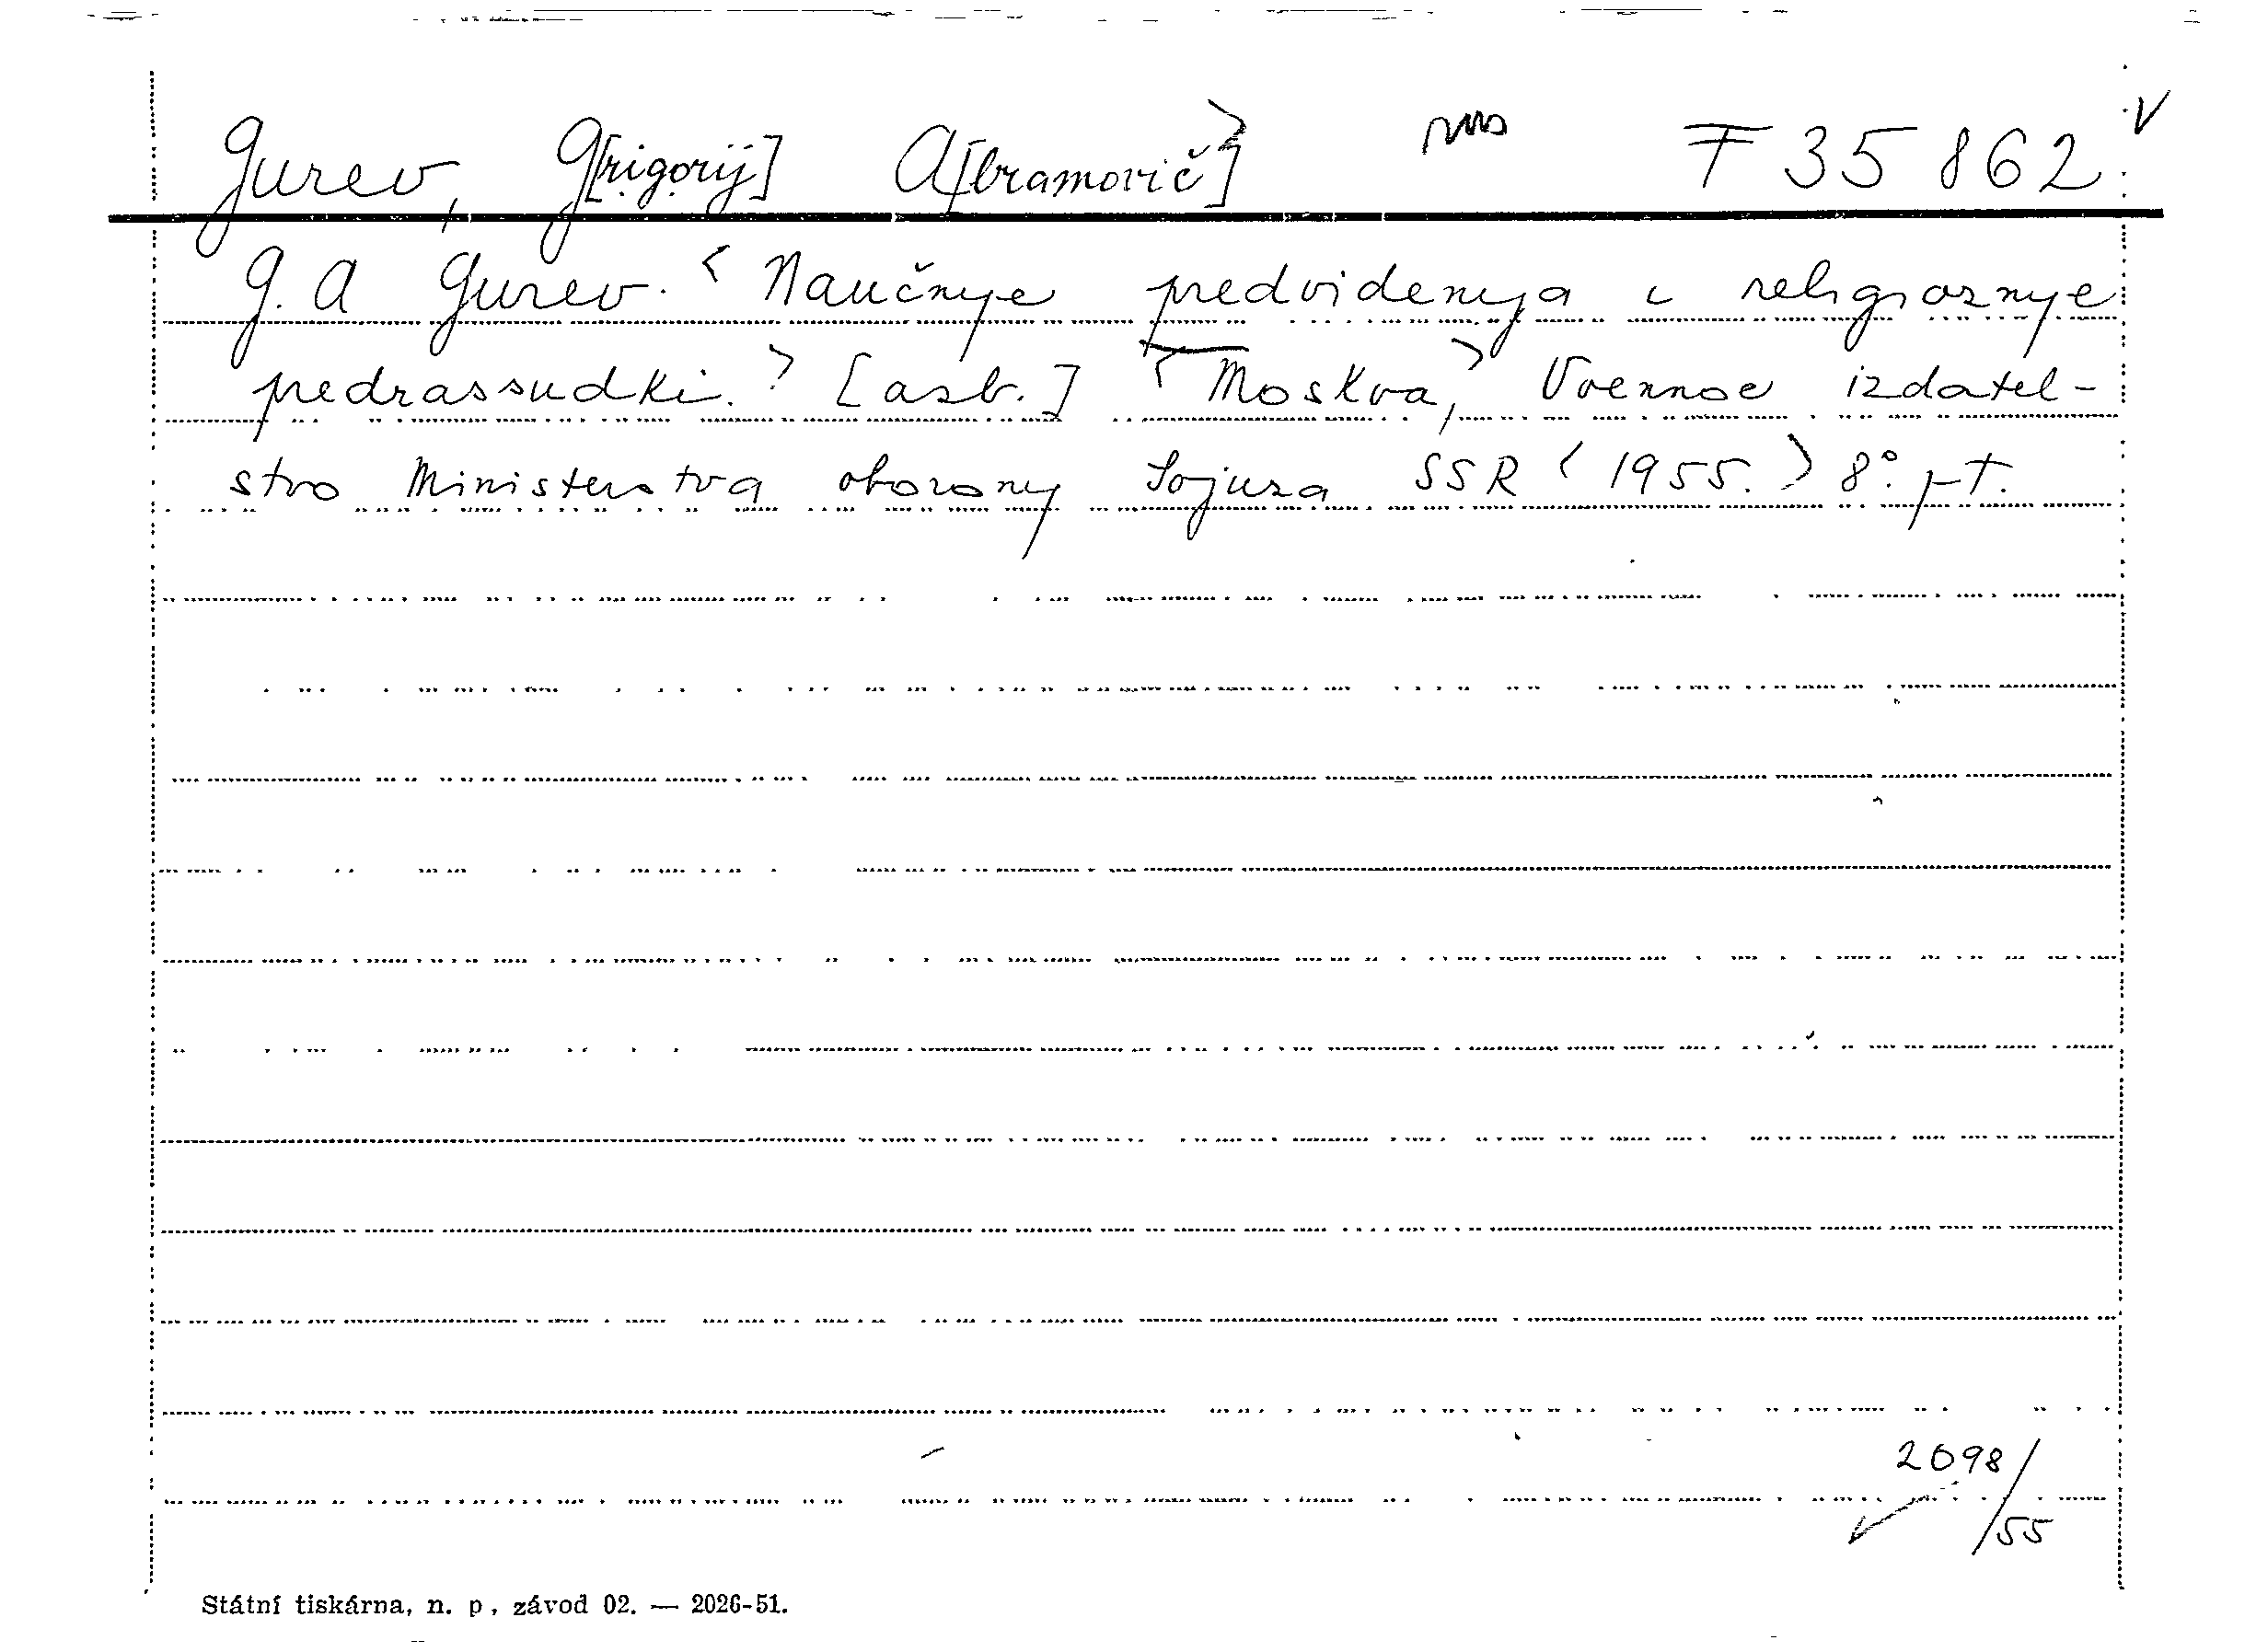 Gurev, G[rigorij] A[bramovič>] F 35862 V
G. A Gurev. < Naučnye predvidenyja i religioznye
predrassudki. > [azb.] < Moskva, > Voennoe izdatel-
stvo Ministerstva oborony Sojuza SSR < 1955. > 8°. pt.
2098/
/55
Státní tiskárna, n. p, závod 02. — 2026-51.